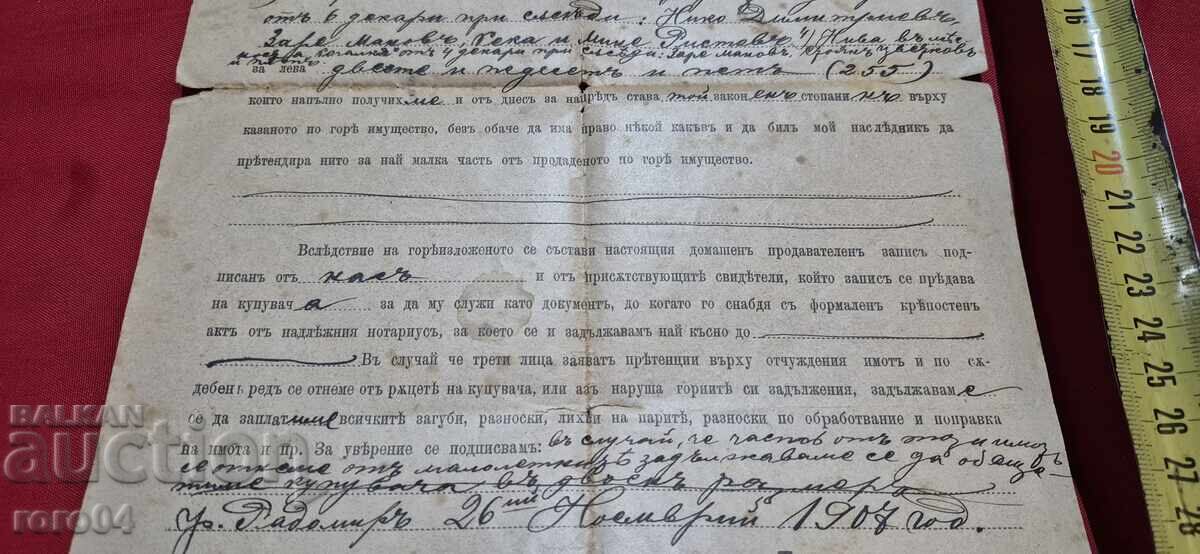 отъ 6 декари при съседи: Нико Димитриевъ,
Заре Мановъ, Цека и Мице Ристови" Нива въ мѣс
при съседи: Заре мановъ, Стоянъ Цвѣтковъ
за лева двесте и педесетъ и петь (255)
които напълно получихме и отъ днесъ за напрѣдъ става той законенъ стопанинъ върху
казаното по горѣ имущество, безъ обаче да има право нѣкой какъвъ и да билъ мой наслѣдникъ да
прѣтендира нито за най малка часть отъ продаденото по горѣ имущество.
Вслѣдствие на горѣизложеното се състави настоящия домашенъ продавателенъ записъ под-
писанъ отъ насъ и отъ присѫтствующитѣ свидѣтели, който записъ се прѣдава
на купувача за да му служи като документъ, до когато го снабдя съ формаленъ крѣпостенъ
актъ отъ надлѣжния нотариусъ, за което се и задължавамъ най късно до
Въ случай че трети лица заяватъ прѣтенции върху отчуждения имотъ и по сѫ-
дебенъ редъ се отнеме отъ рѫцетѣ на купувача, или азъ наруша горнитѣ си задължения, задължаваме
се да заплатиме всичкитѣ загуби, разноски, лихви на паритѣ, разноски по обработвание и поправка
на имота и пр. За увѣрение се подписвамъ: въ случай, че частъ отъ този имотъ
се отнеме отъ малолетни задължаваме се да обезще-
тиме купувача въ двоенъ размеръ
гр. Радомиръ 26ий Ноемврий 1907 год.
BALKAN
auction
roro04
16
17
18
19
20
21
22
23
24
25
26
27
28